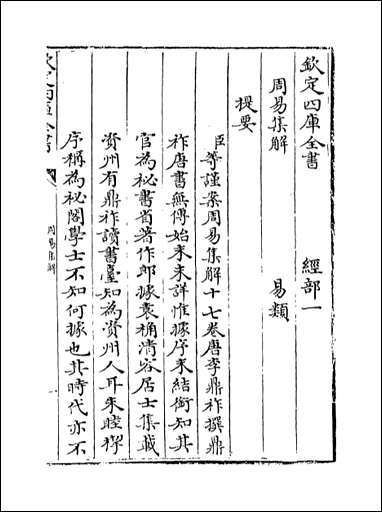 欽定四庫全書 經部一
周易集解 易類
提要
臣等謹案周易集解十七卷唐李鼎祚撰鼎
祚唐書無傳始末未詳惟據序末結銜知其
官為秘書省著作郎據袁桷清容居士集載
資州有鼎祚讀書臺知為資州人耳朱睦㮮
序稱為秘閣學士不知何據也其時代亦不
欽定四庫全書
周易集解